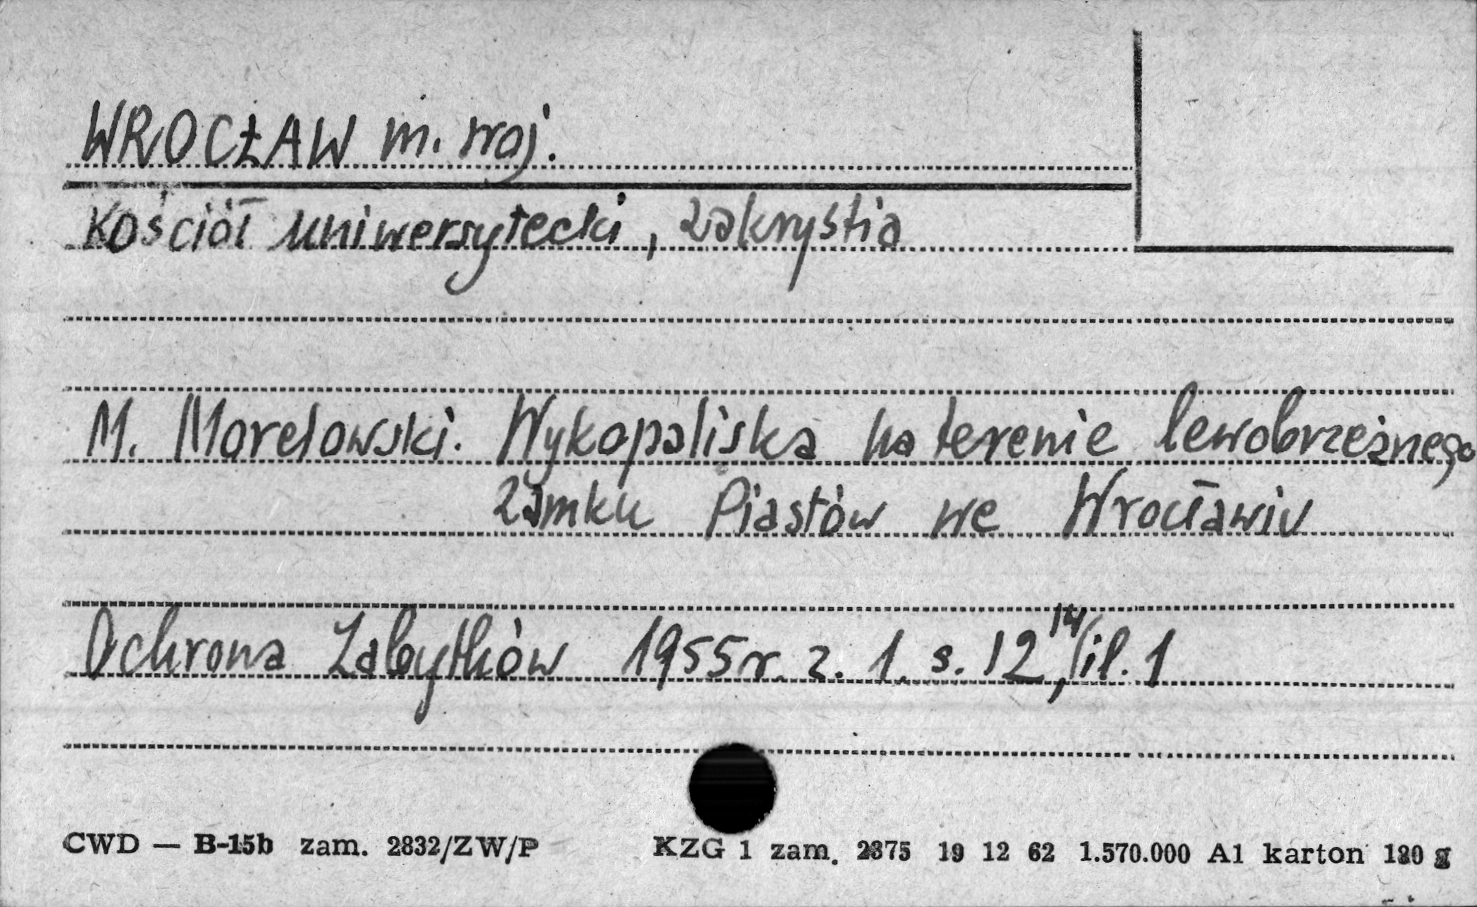 WROCŁAW m. woj.
Kościół uniwersytecki, zakrystia
M. Morelowski. Wykopaliska na terenie lewobrzeżnego
zamku Piastów we Wrocławiu
Ochrona Zabytków 1955 r. z. 1. s. 12, 14 il. 1
CWD — B-15b zam. 2832/ZW/P KZG 1 zam. 2875 19 12 62 1.570.000 A1 karton 120 g